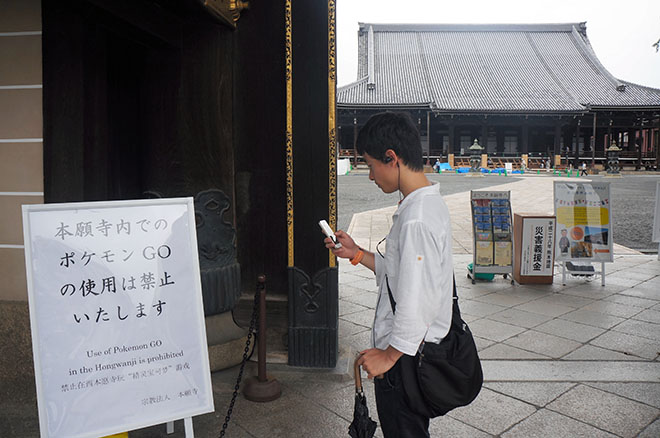 本願寺内での
ポケモンGO
の使用は禁止
いたします
Use of Pokemon GO
in the Hongwanji is prohibited
禁止在西本愿寺玩“精灵宝可梦”游戏
宗教法人 本願寺
災害義援金